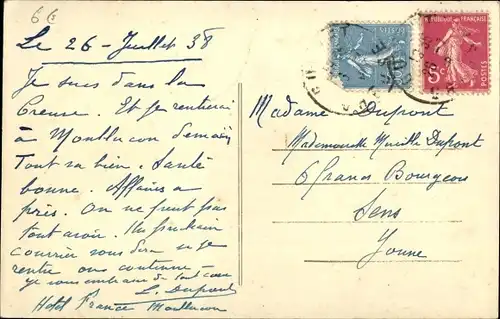 66
Le 26 - Juillet 38
Je suis dans la
Creuse. Et je rentrerai
à Montlucon demain
Tout va bien. Santé
bonne. Affaires a
près. On ne peut pas
tout avoir. Un prochain
courrier vous dira si je
rentre ou continue
je vous embrasse de tout cœur
L. Dupont
Hotel France Montlucon
Madame Dupont
Mademoiselle Dupont
6 Grande Bourgeois
Sens
Yonne
FRANÇAISE
5c
POSTES